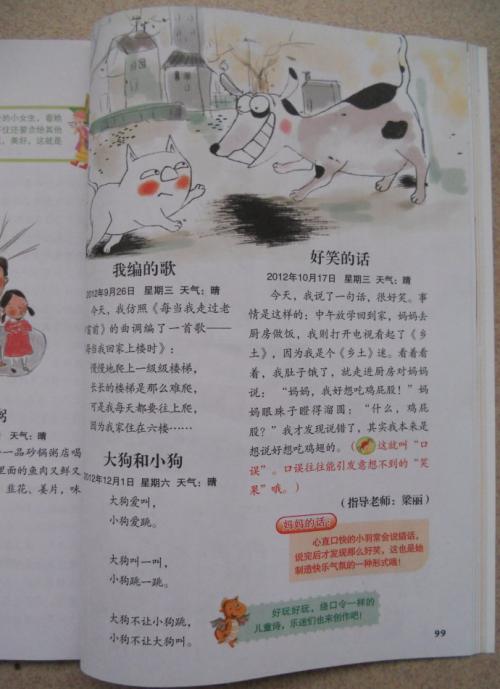 的小女生，看她
不住还要念给其他
美好，这就是
粥
晴
一品砂锅粥店喝
里面的鱼肉又鲜又
韭花、姜片，味
我编的歌
2012年9月26日 星期三 天气：晴
今天，我仿照《每当我走过老
窗前》的曲调编了一首歌——
每当我回家上楼时》：
慢慢地爬上一级级楼梯，
长长的楼梯是那么难爬，
可是我每天都要往上爬，
因为我家住在六楼……
大狗和小狗
2012年12月1日 星期六 天气：晴
大狗爱叫，
小狗爱跳。
大狗叫一叫，
小狗跳一跳。
大狗不让小狗跳，
小狗不让大狗叫。
好笑的话
2012年10月17日 星期三 天气：晴
今天，我说了一句话，很好笑。事
情是这样的：中午放学回到家，妈妈去
厨房做饭，我则打开电视看起了《乡
土》，因为我是个《乡土》迷。看着看
着，我肚子饿了，就走进厨房对妈妈
说：“妈妈，我好想吃鸡屁股！”妈
妈眼珠子瞪得溜圆：“什么，鸡屁
股？”我才发现说错了，其实我本来是
想说好想吃鸡翅的。（这就叫“口
误”。口误往往能引发意想不到的“笑
果”哦。）
（指导老师：梁丽）
妈妈的话：
心直口快的小羽常会说错话，
说完后才发现那么好笑，这也是她
制造快乐气氛的一种形式哦！
好玩好玩，绕口令一样的
儿童诗，乐迷们也来创作吧！
99